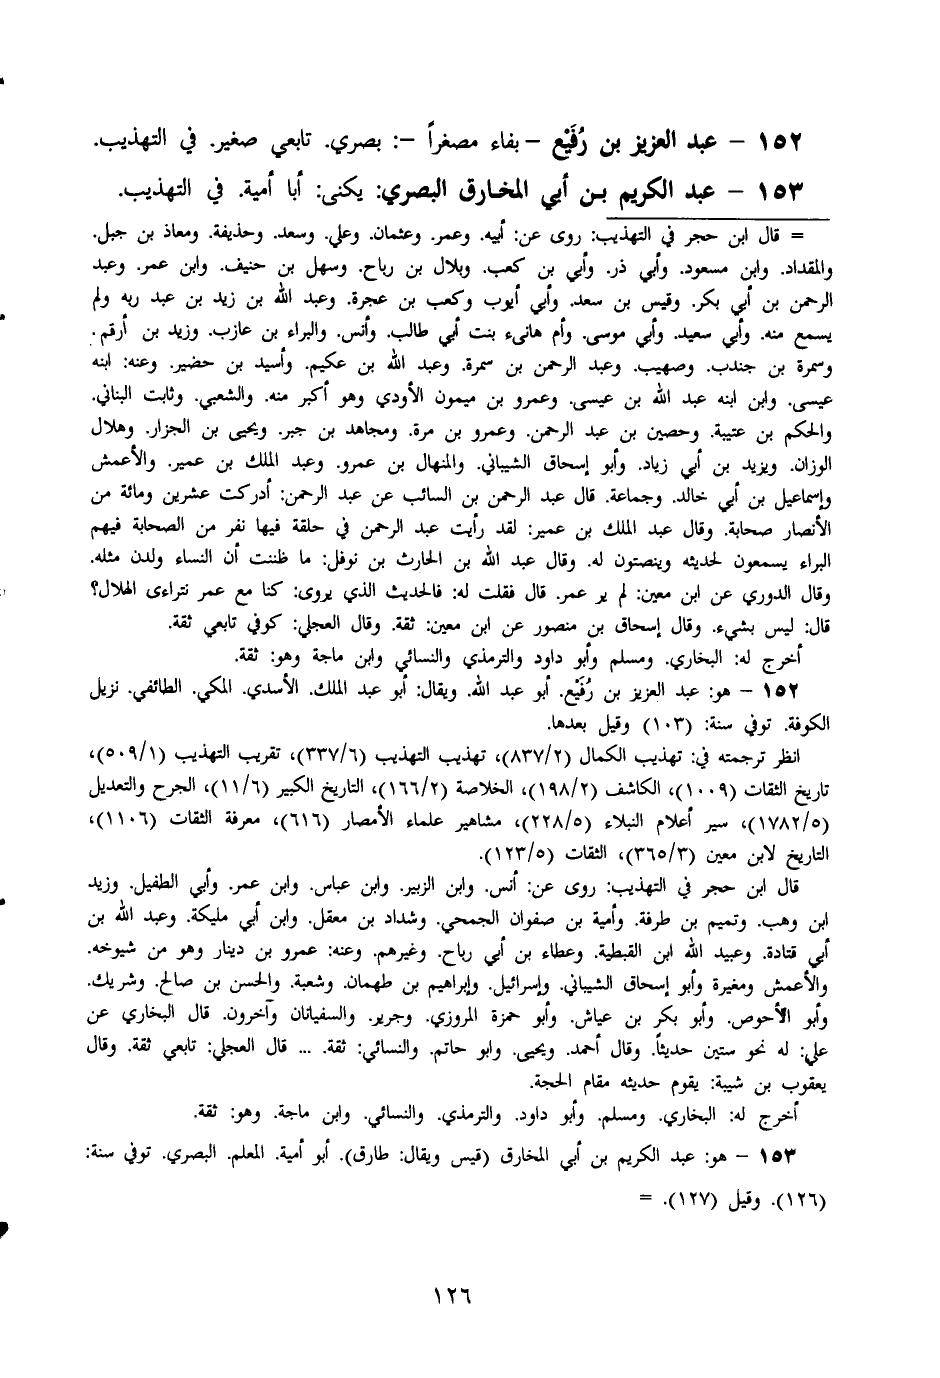 ١٥٢ - عبد العزيز بن رُفَيْع - بفاء مصغراً -: بصري. تابعي صغير. في التهذيب.
١٥٣ - عبد الكريم بن أبي المخارق البصري: يكنى: أبا أمية. في التهذيب.
= قال ابن حجر في التهذيب: روى عن: أبيه. وعمر. وعثمان. وعلي. وسعد. وحذيفة. ومعاذ بن جبل.
والمقداد. وابن مسعود. وأبي ذر. وأبي بن كعب. وبلال بن رباح. وسهل بن حنيف. وابن عمر. وعبد
الرحمن بن أبي بكر. وقيس بن سعد. وأبي أيوب وكعب بن عجرة. وعبد الله بن زيد بن عبد ربه ولم
يسمع منه. وأبي سعيد. وأبي موسى. وأم هانىء بنت أبي طالب. وأنس. والبراء بن عازب. وزيد بن أرقم.
وسمرة بن جندب. وصهيب. وعبد الرحمن بن سمرة. وعبد الله بن عكيم. وأسيد بن حضير. وعنه: ابنه
عيسى. وابن ابنه عبد الله بن عيسى. وعمرو بن ميمون الأودي وهو أكبر منه. والشعبي. وثابت البناني.
والحكم بن عتيبة. وحصين بن عبد الرحمن. وعمرو بن مرة. ومجاهد بن جبر. ويحيى بن الجزار. وهلال
الوزان. ويزيد بن أبي زياد. وأبو إسحاق الشيباني. والمنهال بن عمرو. وعبد الملك بن عمير. والأعمش
وإسماعيل بن أبي خالد. وجماعة. قال عبد الرحمن بن السائب عن عبد الرحمن: أدركت عشرين ومائة من
الأنصار صحابة. وقال عبد الملك بن عمير: لقد رأيت عبد الرحمن في حلقة فيها نفر من الصحابة فيهم
البراء يسمعون لحديثه وينصتون له. وقال عبد الله بن الحارث بن نوفل: ما ظننت أن النساء ولدن مثله.
وقال الدوري عن ابن معين: لم ير عمر. قال فقلت له: فالحديث الذي يروى: كنا مع عمر نتراءى الهلال؟
قال: ليس بشيء. وقال إسحاق بن منصور عن ابن معين: ثقة. وقال العجلي: كوفي تابعي ثقة.
أخرج له: البخاري. ومسلم وأبو داود والترمذي والنسائي وابن ماجة وهو: ثقة.
١٥٢ - هو: عبد العزيز بن رُفَيْع. أبو عبد الله. ويقال: أبو عبد الملك. الأسدي. المكي. الطائفي. نزيل
الكوفة. توفي سنة: (١٠٣) وقيل بعدها.
انظر ترجمته في: تهذيب الكمال (٨٣٧/٢)، تهذيب التهذيب (٣٣٧/٦)، تقريب التهذيب (٥٠٩/١)،
تاريخ الثقات (١٠٠٩)، الكاشف (١٩٨/٢)، الخلاصة (١٦٦/٢)، التاريخ الكبير (١١/٦)، الجرح والتعديل
(١٧٨٢/٥)، سير أعلام النبلاء (٢٢٨/٥)، مشاهير علماء الأمصار (٦١٦)، معرفة الثقات (١١٠٦)،
التاريخ لابن معين (٣٦٥/٣)، الثقات (١٢٣/٥).
قال ابن حجر في التهذيب: روى عن: أنس. وابن الزبير. وابن عباس. وابن عمر. وأبي الطفيل. وزيد
ابن وهب. وتميم بن طرفة. وأمية بن صفوان الجمحي. وشداد بن معقل. وابن أبي مليكة. وعبد الله بن
أبي قتادة. وعبيد الله ابن القبطية. وعطاء بن أبي رباح. وغيرهم. وعنه: عمرو بن دينار وهو من شيوخه.
والأعمش ومغيرة وأبو إسحاق الشيباني. وإسرائيل. وإبراهيم بن طهمان. وشعبة. والحسن بن صالح. وشريك.
وأبو الأحوص. وأبو بكر بن عياش. وأبو حمزة المروزي. وجرير. والسفيانان وآخرون. قال البخاري عن
علي: له نحو ستين حديثاً. وقال أحمد. ويحيى. وابو حاتم. والنسائي: ثقة. ... قال العجلي: تابعي ثقة. وقال
يعقوب بن شيبة: يقوم حديثه مقام الحجة.
أخرج له: البخاري. ومسلم. وأبو داود. والترمذي. والنسائي. وابن ماجة. وهو: ثقة.
١٥٣ - هو: عبد الكريم بن أبي المخارق (قيس ويقال: طارق). أبو أمية. المعلم. البصري. توفي سنة:
(١٢٦). وقيل (١٢٧). =
١٢٦